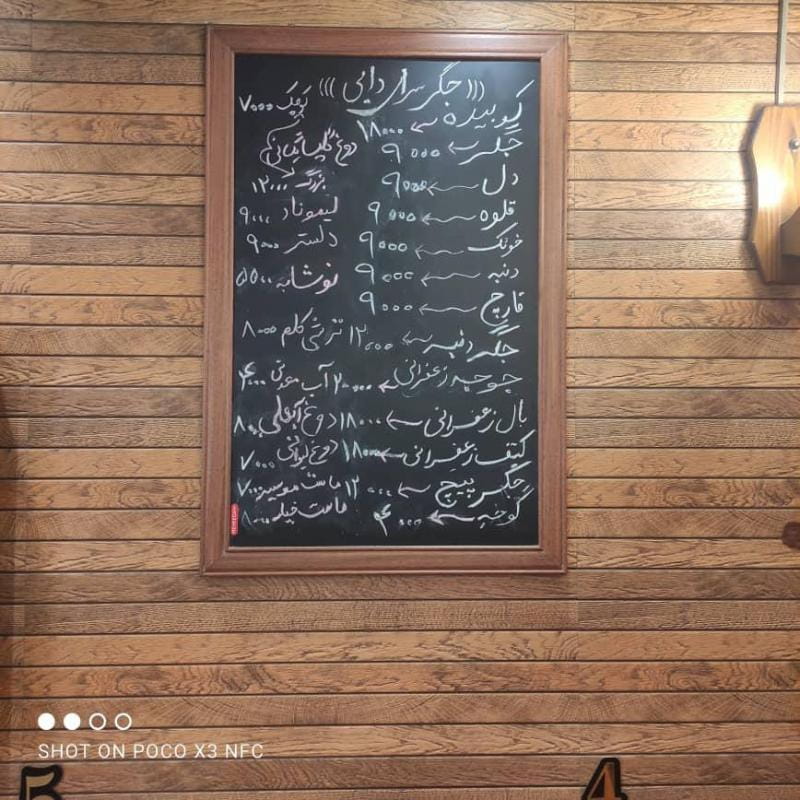 (((جگر سرای دایی)))
کوبیده ← ۱۸۰۰۰
جگر ← ۹۰۰۰
دل ← ۹۰۰۰
قلوه ← ۹۰۰۰
خوئک ← ۹۰۰۰
دنبه ← ۹۰۰۰
قارچ ← ۹۰۰۰
جگر دنبه ← ۱۲۰۰۰
جوجه زعفرانی ← ۲۰۰۰۰
بال زعفرانی ← ۱۸۰۰۰
کتف زعفرانی ← ۱۸۰۰۰
جگر پیچ ← ۱۲۰۰۰
گوجه ← ۴۰۰۰
پفک ۷۰۰۰
دوغ گلپایگانی
بزرگ ۱۲۰۰۰
لیموناد ۹۰۰۰
دلستر ۹۰۰۰
نوشابه ۵۵۰۰
ترشی کلم ۸۰۰۰
آب معدنی ۴۰۰۰
دوغ آبعلی ۸۰۰۰
دوغ لیوانی ۷۰۰۰
ماست موسیر ۷۰۰۰
ماست خیار ۸۰۰۰
SHOT ON POCO X3 NFC
5
4